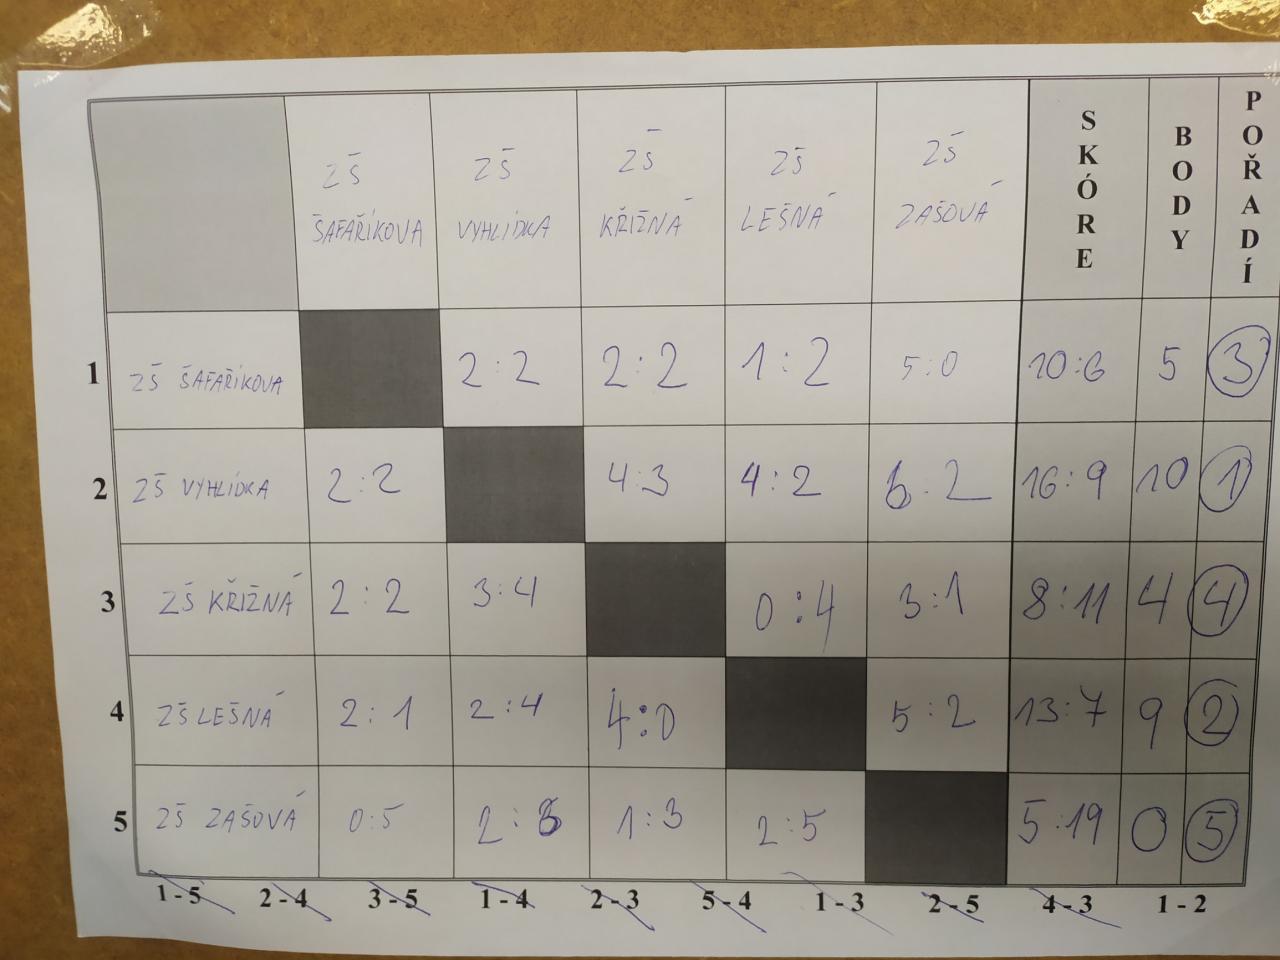 ZŠ ŠAFAŘÍKOVA ZŠ VYHLÍDKA ZŠ KŘIŽNÁ ZŠ LEŠNÁ ZŠ ZAŠOVÁ SKÓRE BODY POŘADÍ
1 ZŠ ŠAFAŘÍKOVA 2:2 2:2 1:2 5:0 10:6 5 3
2 ZŠ VYHLÍDKA 2:2 4:3 4:2 6:2 16:9 10 1
3 ZŠ KŘIŽNÁ 2:2 3:4 0:4 3:1 8:11 4 4
4 ZŠ LEŠNÁ 2:1 2:4 4:0 5:2 13:7 9 2
5 ZŠ ZAŠOVÁ 0:5 2:6 1:3 2:5 5:19 0 5
1 - 5 2 - 4 3 - 5 1 - 4 2 - 3 5 - 4 1 - 3 2 - 5 4 - 3 1 - 2